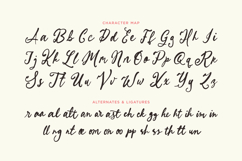 CHARACTER MAP
Aa Bb Cc Dd Ee Ff Gg Hh Ii
Jj Kk Ll Mm Nn Oo Pp Qq Rr
Ss Tt Uu Vv Ww Xx Yy Zz
ALTERNATES & LIGATURES
r oa al att an ar ast ch ck gg he ht ih im in
ll ng nt œ om on oo pp sh ss th tt un